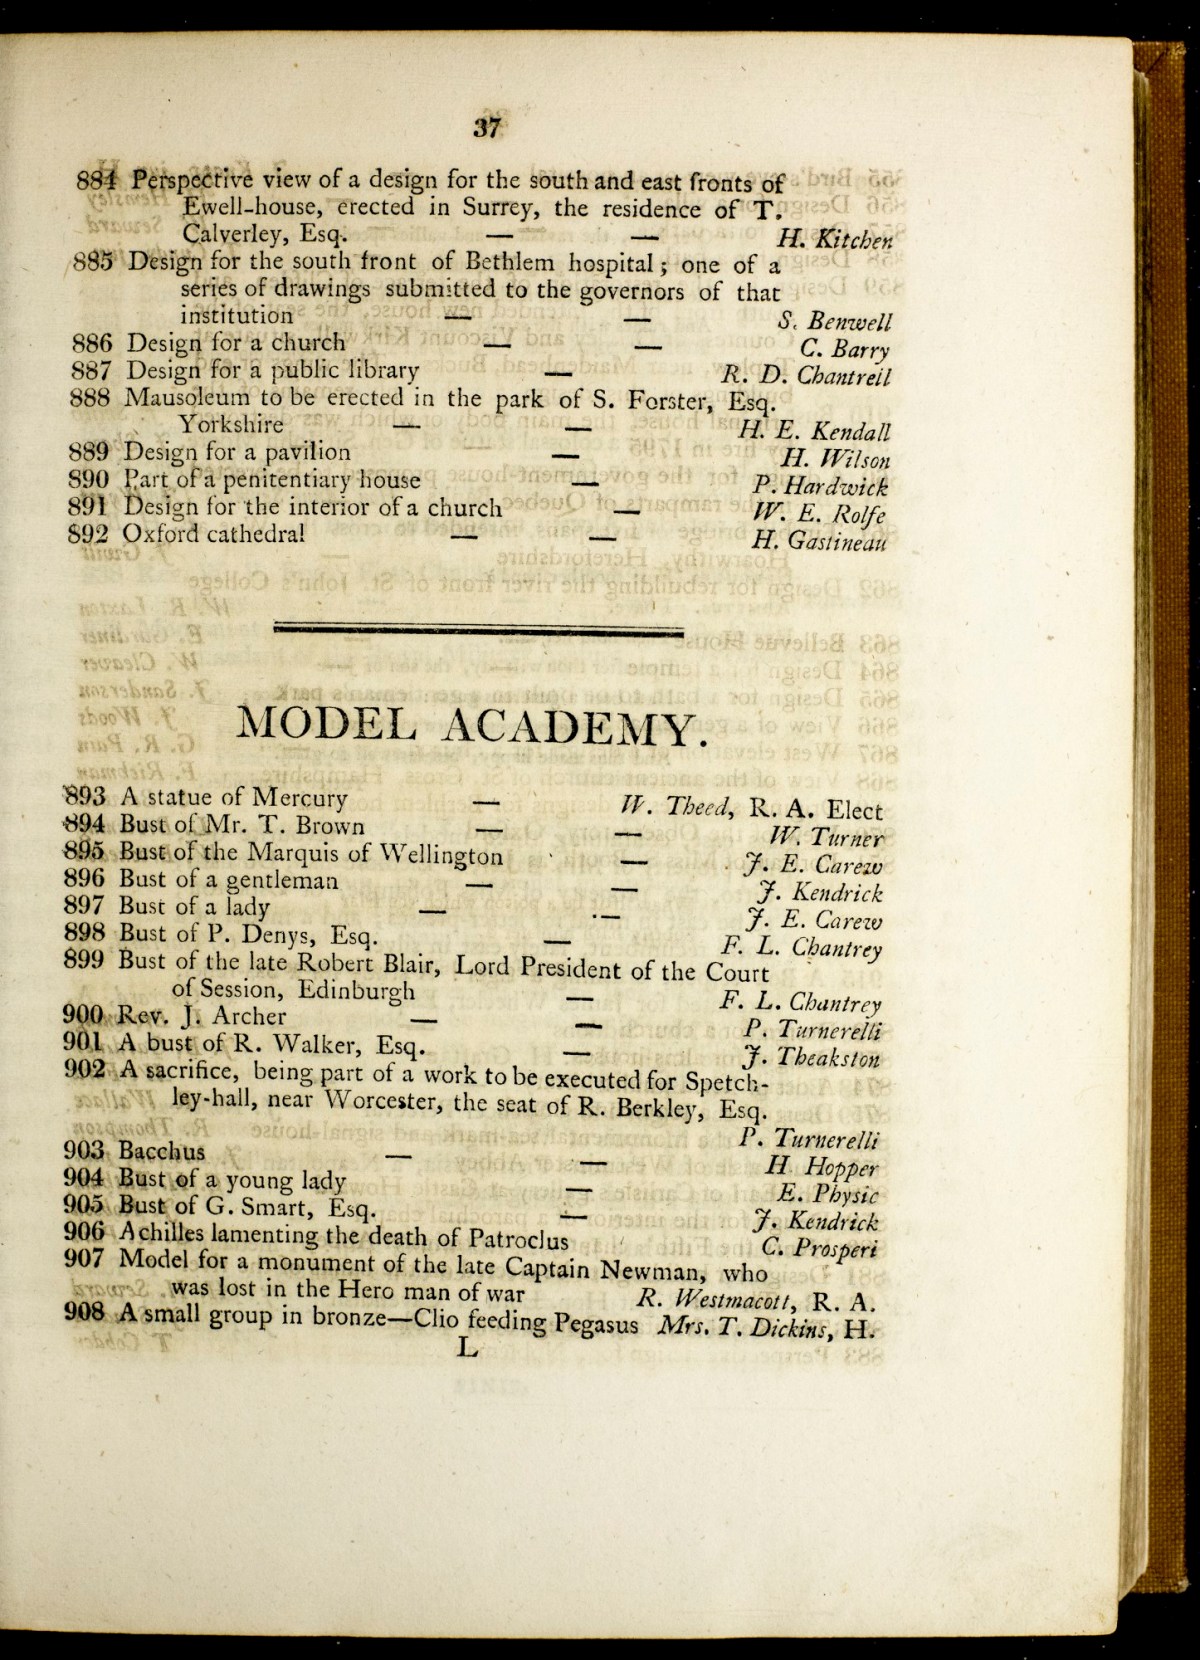 37
884 Perspective view of a design for the south and east fronts of
Ewell-house, erected in Surrey, the residence of T.
Calverley, Esq. — — H. Kitchen
885 Design for the south front of Bethlem hospital; one of a
series of drawings submitted to the governors of that
institution — — S. Benwell
886 Design for a church — — C. Barry
887 Design for a public library — R. D. Chantreil
888 Mausoleum to be erected in the park of S. Forster, Esq.
Yorkshire — — H. E. Kendall
889 Design for a pavilion — H. Wilson
890 Part of a penitentiary house — P. Hardwick
891 Design for the interior of a church — W. E. Rolfe
892 Oxford cathedral — — H. Gastineau
MODEL ACADEMY.
893 A statue of Mercury — W. Theed, R. A. Elect
894 Bust of Mr. T. Brown — — W. Turner
895 Bust of the Marquis of Wellington — J. E. Carew
896 Bust of a gentleman — — J. Kendrick
897 Bust of a lady — — J. E. Carew
898 Bust of P. Denys, Esq. — F. L. Chantrey
899 Bust of the late Robert Blair, Lord President of the Court
of Session, Edinburgh — F. L. Chantrey
900 Rev. J. Archer — — P. Turnerelli
901 A bust of R. Walker, Esq. — J. Theakston
902 A sacrifice, being part of a work to be executed for Spetch-
ley-hall, near Worcester, the seat of R. Berkley, Esq.
P. Turnerelli
903 Bacchus — — H Hopper
904 Bust of a young lady — E. Physic
905 Bust of G. Smart, Esq. — J. Kendrick
906 Achilles lamenting the death of Patroclus C. Prosperi
907 Model for a monument of the late Captain Newman, who
was lost in the Hero man of war R. Westmacott, R. A.
908 A small group in bronze—Clio feeding Pegasus Mrs. T. Dickins, H.
L